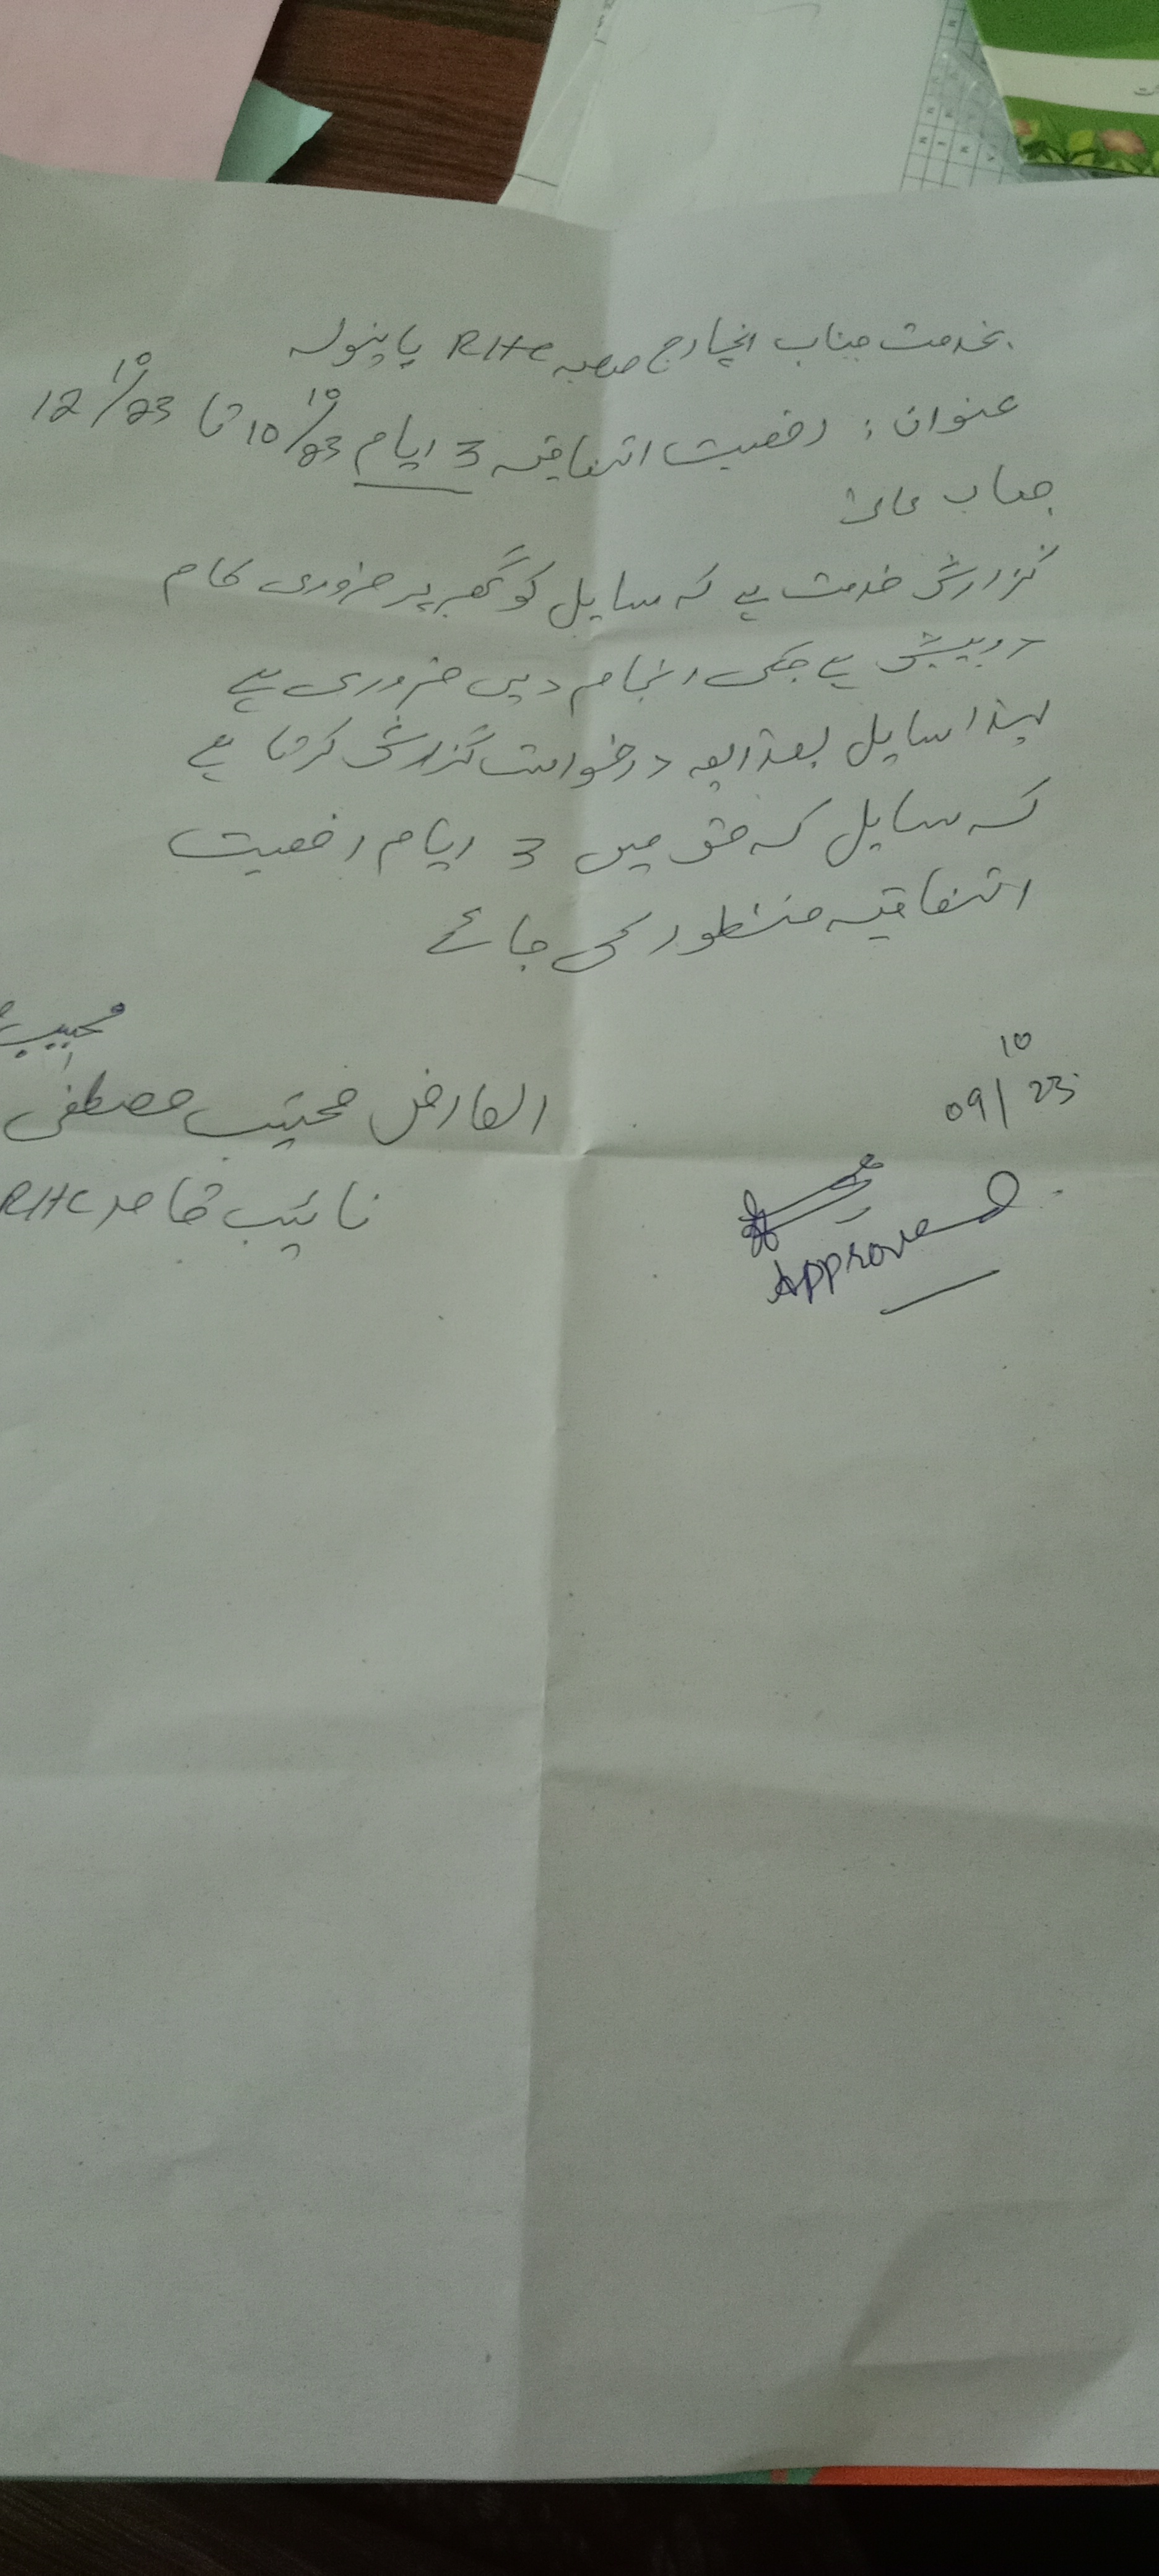 بخدمت جناب انچارج صاحب RHC پاچنولہ
عنوان: رخصیت اتفاقیہ 3 ایام 10/10/23 تا 12/10/23
جناب عالی
گزارش خدمت ہے کہ سایل کو گھر پر ضروری کام
درپیش ہے جسکی انجام دہی ضروری ہے
لہذا سایل بعذریعہ درخواست گزارش کرتا ہے
کہ سایل کہ حق میں 3 ایام رخصیت
اتفاقیہ منظور کی جائے
العارض مجتبیٰ مصطفی
نائیب قاصد RHC
09/10/23
Approved